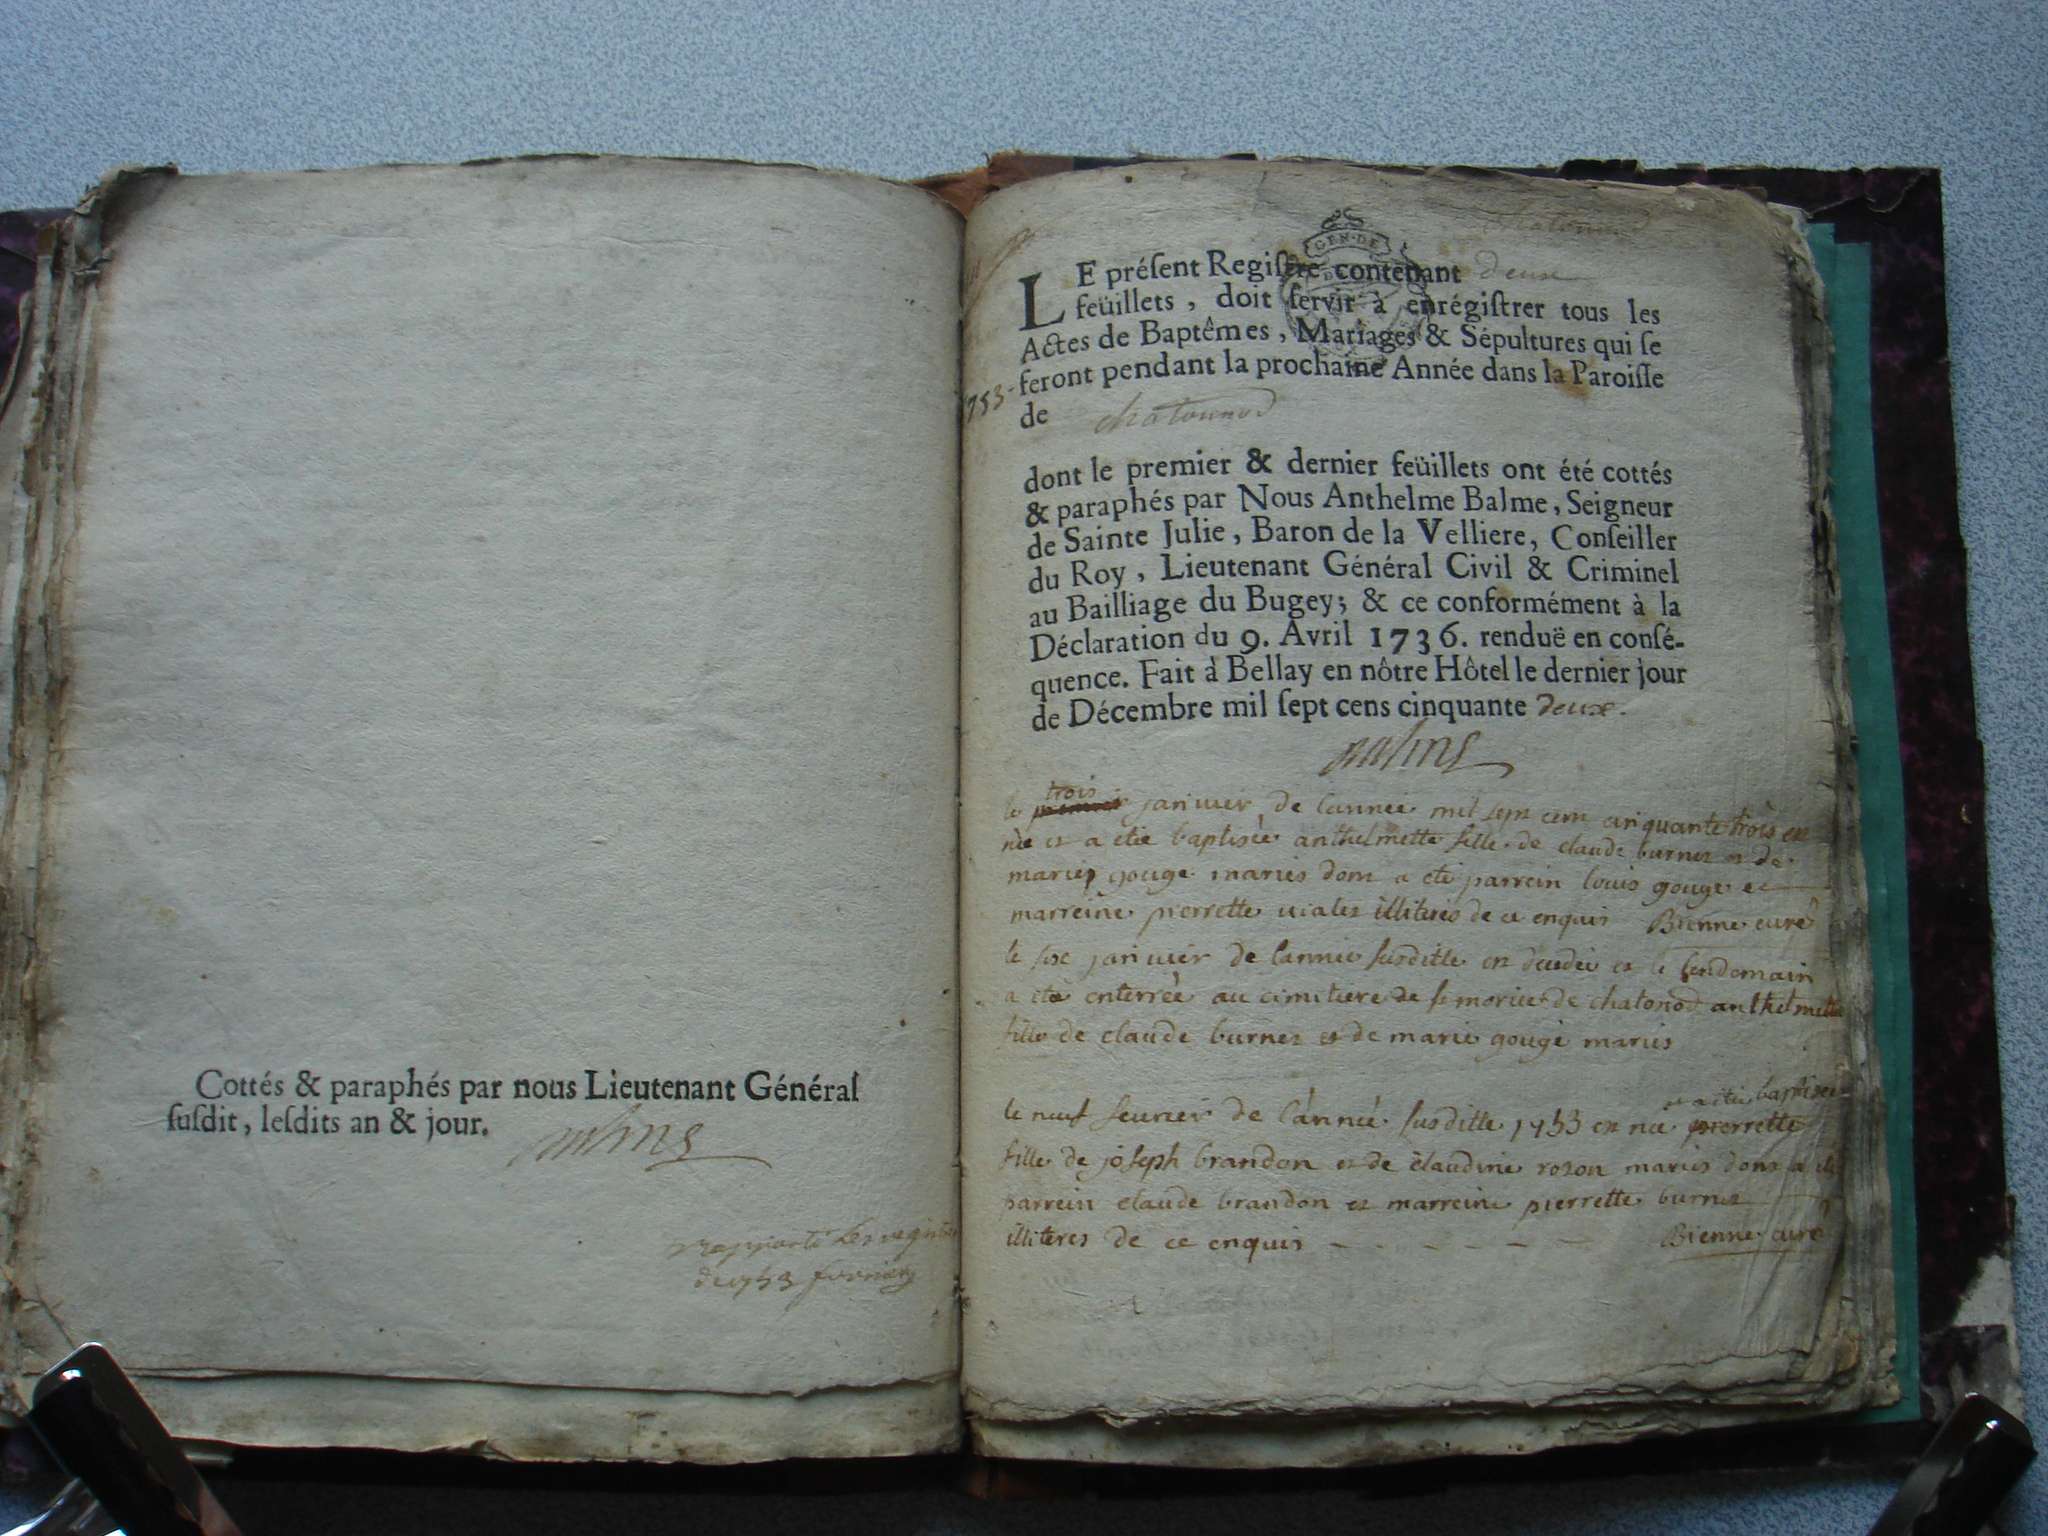 Cottés & paraphés par nous Lieutenant Général
ſuſdit, leſdits an & jour.
rapporté les regist
de 1753
chatonod
GEN·DE
LE préſent Regiſtre contenant deux
feüillets, doit ſervir à enrégiſtrer tous les
Actes de Baptêmes, Mariages & Sépultures qui ſe
feront pendant la prochaine Année dans la Paroiſſe
1753-
de chatounod
dont le premier & dernier feüillets ont été cottés
& paraphés par Nous Anthelme Balme, Seigneur
de Sainte Julie, Baron de la Velliere, Conſeiller
du Roy, Lieutenant Général Civil & Criminel
au Bailliage du Bugey; & ce conformément à la
Déclaration du 9. Avril 1736. renduë en conſé-
quence. Fait à Bellay en nôtre Hôtel le dernier jour
de Décembre mil ſept cens cinquante deux.
trois
le premier janvier de lannée mil sept cent cinquante trois est
née et a etée baptisée anthelmette fille de claude burnet et de
marie gouge mariés dont a eté parrein louis gouge et
marreine pierrette vialet illiterés de ce enquis Bienne curé
le six janvier de lannée susditte est decedée et le lendemain
a eté enterrée au cimitiere de st morice de chatonod anthelmette
fille de claude burnet et de marie gouge mariés
et a etée baptisée
le neuf feuvrier de l'année susditte 1753 est née pierrette
fille de joseph brandon et de claudine roson mariés dont a eté
parrein claude brandon et marreine pierrette burnet
illiterés de ce enquis - - - - - - Bienne curé